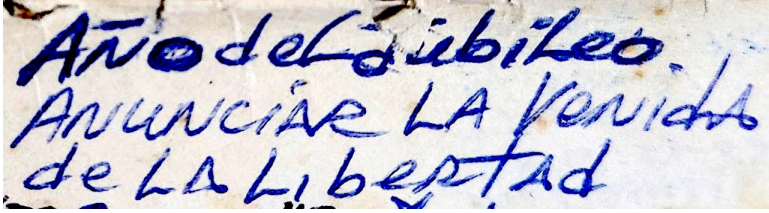 Año del Jubileo.
ANUNCIAR LA VeNidA
de LA LibeRTAd